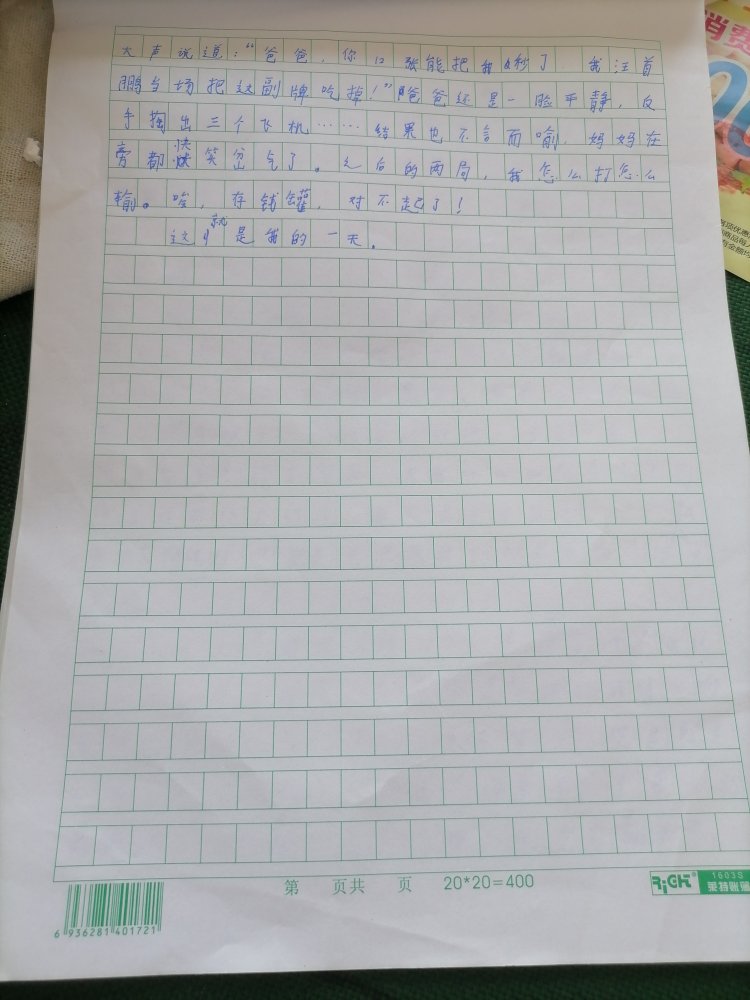 大声说道：“爸爸，你12张能把我秒了，我汪首
鹏当场把这副牌吃掉！”爸爸还是一脸平静，反
手掏出三个飞机……结果也不言而喻，妈妈在
旁都快笑岔气了。之后的两局，我怎么打怎么
输。唉，存钱罐，对不起了！
这就是我的一天。
第 页共 页 20*20=400
RiCH 1603S
莱特账簿
6 936281 401721
消费